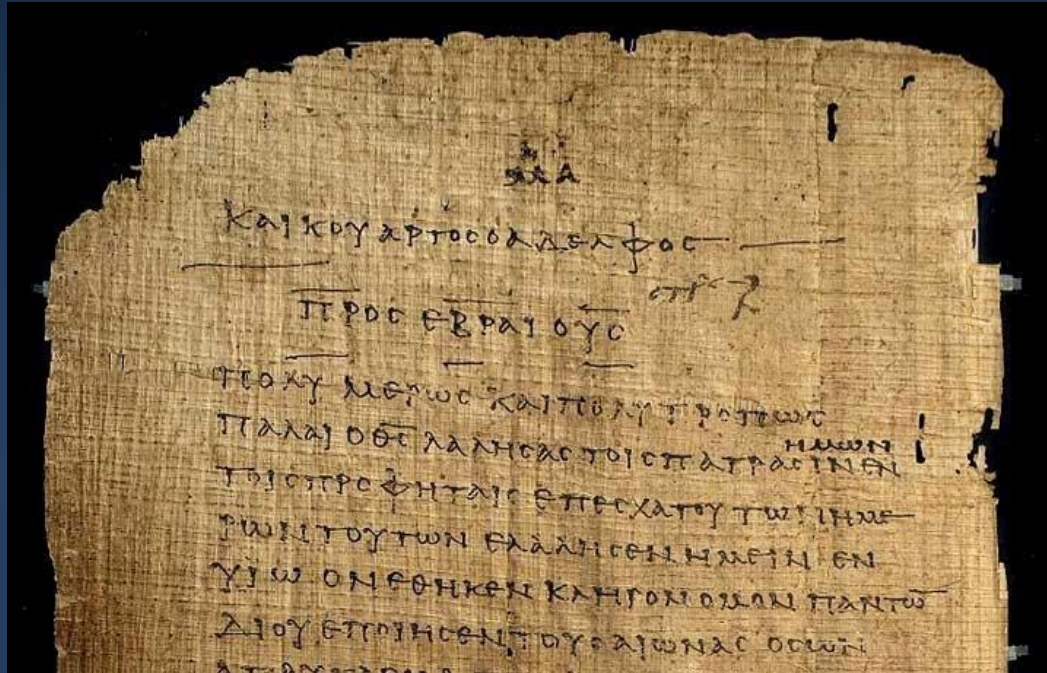 ΜΑ
ΚΑΙ ΚΟΥΑΡΤΟΣ Ο ΑΔΕΛΦΟΣ
ΠΡΟΣ ΕΒΡΑΙΟΥΣ
ΠΟΛΥΜΕΡΩΣ ΚΑΙ ΠΟΛΥΤΡΟΠΩΣ
ΗΜΩΝ
ΠΑΛΑΙ Ο ΘΣ ΛΑΛΗΣΑΣ ΤΟΙΣ ΠΑΤΡΑΣΙΝ ΕΝ
ΤΟΙΣ ΠΡΟΦΗΤΑΙΣ ΕΠ ΕΣΧΑΤΟΥ ΤΩΝ ΗΜΕ
ΡΩΝ ΤΟΥΤΩΝ ΕΛΑΛΗΣΕΝ ΗΜΕΙΝ ΕΝ
ΥΙΩ ΟΝ ΕΘΗΚΕΝ ΚΛΗΡΟΝΟΜΟΝ ΠΑΝΤΩ
ΔΙ ΟΥ ΕΠΟΙΗΣΕΝ ΤΟΥΣ ΑΙΩΝΑΣ ΟΣ ΩΝ